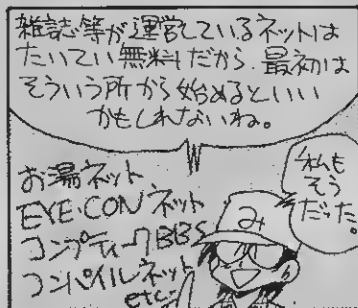 雑誌等が運営しているネットは
たいてい無料だから、最初は
そういう所から始めるといい
かもしれないね。
私も
そう
だった。
お湯ネット
EYE・CONネット
コンプティークBBS
コンパイルネット
etc…
み